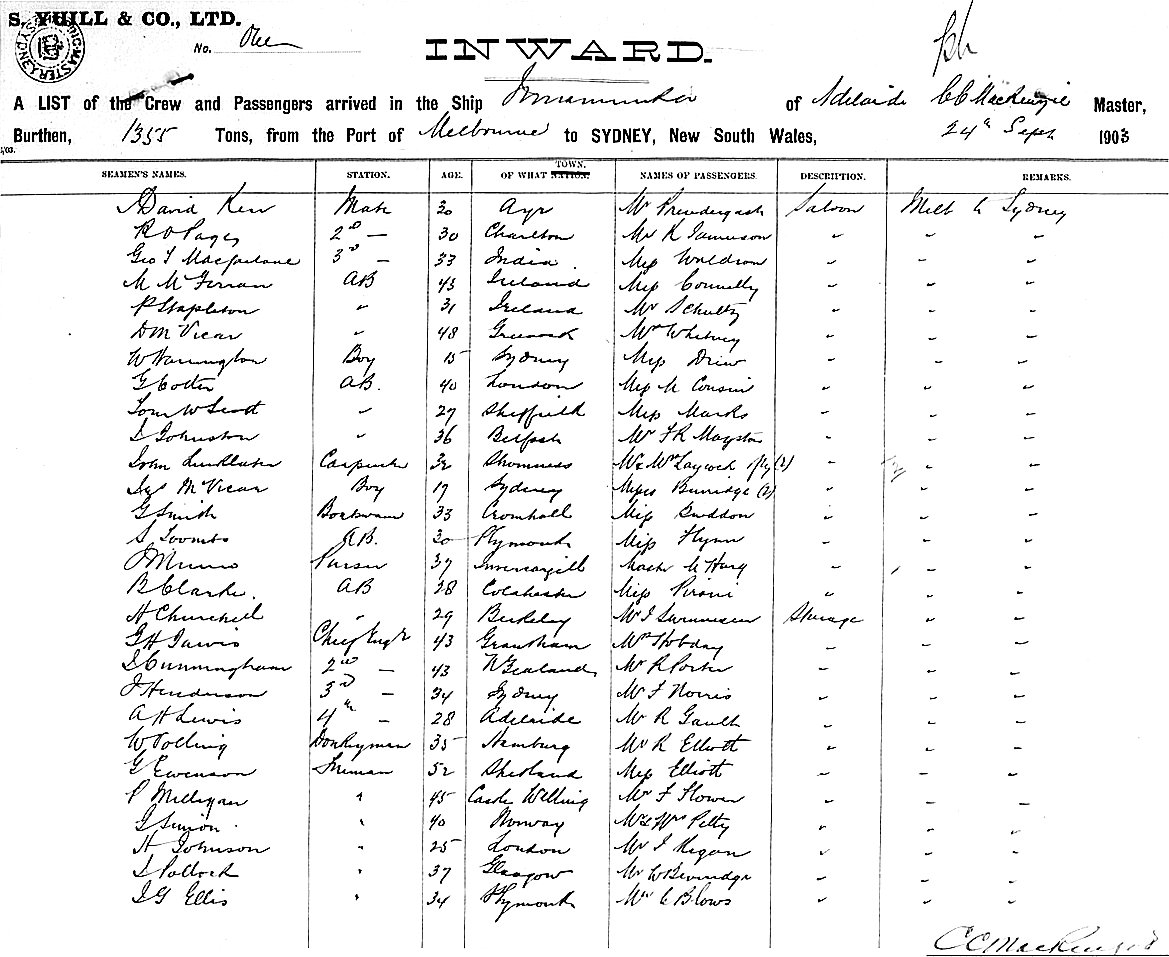 S. YUILL & CO., LTD.
No.
INWARD.
A LIST of the Crew and Passengers arrived in the Ship Innamincka of Adelaide C C MacKenzie Master,
Burthen, 1355 Tons, from the Port of Melbourne to SYDNEY, New South Wales, 24th Sept 1903
SEAMEN'S NAMES. STATION. AGE. OF WHAT NATION. TOWN. NAMES OF PASSENGERS. DESCRIPTION. REMARKS.
David Kerr Mate 30 Ayr Mr Prendergast Saloon Melb to Sydney
2nd — 30 Charlton Mr R Jamieson " " "
Geo T Macfarlane 3rd — 33 India Miss Waldron " " "
M McFerran AB 43 Ireland Miss Connelly " " "
P Stapleton " 31 Ireland Mr Schultz " " "
D McVicar " 48 Greenock Whitney " " "
W Harrington Boy 15 Sydney Miss Drew " " "
G Cotter AB. 40 London Miss M Cousin " " "
Tom W Scott " 27 Sheffield Miss Marks " " "
Johnston " 36 Belfast Mr F R Mayston " " "
Carpenter 32 Stromness Laycock (2) " " "
McVicar Boy 17 Sydney Misses Burridge (2) " " "
G Smith Boatswain 33 Cromhall Miss " " "
S Toombs A.B. 30 Plymouth Miss Flynn " " "
J Munro Purser 37 Invercargill Master " " "
B Clarke. AB 28 Colchester Miss Pirani " " "
H Churchill " 29 Berkeley Mr Steerage " " "
G H Jarvis Chief Engr 43 Grantham Hobday " " "
J Cunningham 2nd — 43 N Zealand Mr R Porter " " "
J Henderson 3rd — 34 Sydney Mr F Norris " " "
A H Lewis 4th — 28 Adelaide Mr R Gault " " "
W Polling Donkeyman 35 Hamburg Mr R Elliott " " "
G Ewenson Fireman 52 Shetland Miss Elliott " " "
P Milligan " 45 Castle Welling Mr F Flower " " "
Simon " 40 Norway Mr & Mrs Petty " " "
H Johnson " 25 London Mr J Regan " " "
J Pollock " 37 Glasgow Mr W Beveridge " " "
J G Ellis " 34 Plymouth C Blows " " "
C C MacKenzie